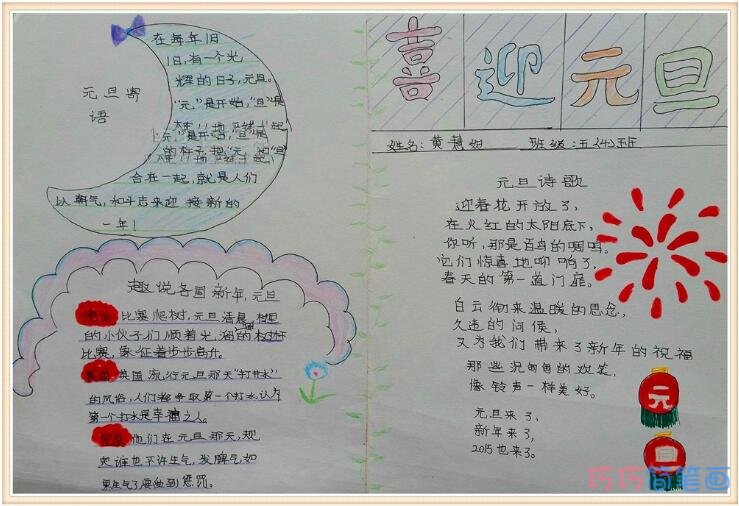 喜迎元旦
姓名:黄慧 班级:五(4)班
元旦寄语
在每年1月
1日,有一个光
辉的日子,元旦。
"元"是开始,"旦"是
"元"是开始,"旦"
合在一起,就是人们
以朝气,如斗志来迎接新的
一年!
趣说各国新年,元旦
比赛爬树,元旦清晨,
的小伙子们顺着光溜的
比赛,象征着步步高升。
英国流行元旦那天"打井水"
的风俗,人们都争取第一个打水,认为
第一个打水是幸福之人。
他们在元旦那天,规
定谁也不许生气,发脾气如
果生气了要受到惩罚。
元旦诗歌
迎春花开放了,
在火红的太阳底下,
你听,那是百鸟的啁鸣。
它们惊喜地叩响了,
春天的第一道门扉。
白云衔来温暖的思念,
久违的问候,
又为我们带来了新年的祝福
那些汜甸甸的欢笑,
像铃声一样美好。
元旦来了,
新年来了,
2015也来了。
元
旦
巧巧简笔画